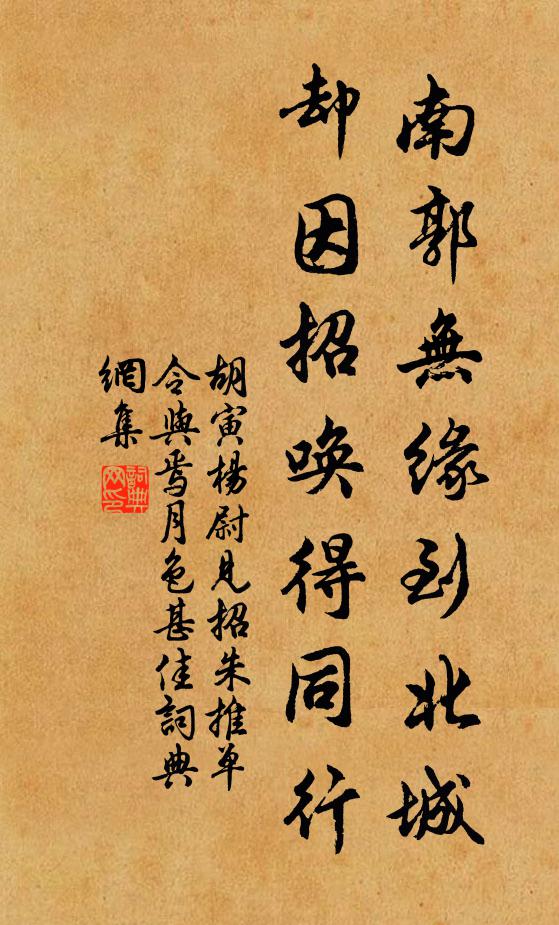 南郭無緣到北城
却因招喚得同行
胡寅楊尉見招朱推單
令與焉月色甚佳詞典
網集
詞典
网印